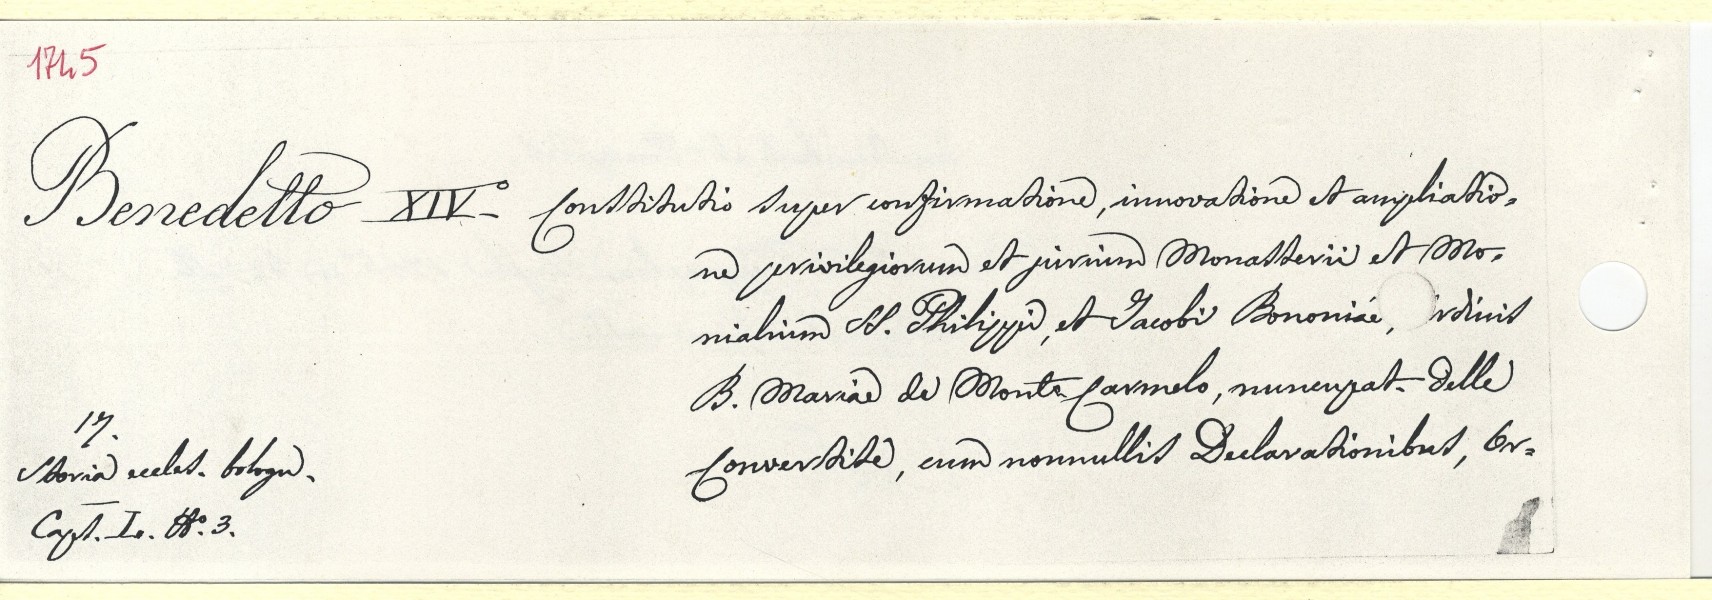 1745
Benedetto XIV.° Constitutio super confirmatione, innovatione et ampliatio-
ne privilegiorum et jurium Monasterii et Mo-
nialium SS. Philippi, et Jacobi Bononiae, rdinis
B. Mariae de Monte Carmelo, nuncupat. delle
Convertite, cum nonnullis Declarationibus, Or-
17.
Storia eccles. bologn.
Capt. I. N.° 3.